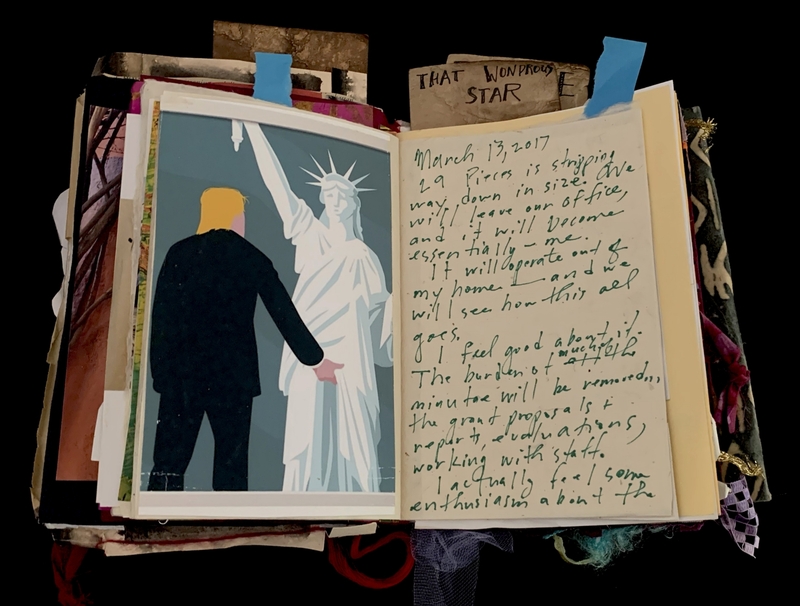 THAT WONDROUS
STAR
E
March 13, 2017
29 Pieces is stripping
way down in size. We
will leave our office,
and it will become
essentially – me.
It will operate out of
my home – and we
will see how this all
goes.
I feel good about it.
The burden of much of the
minutae will be removed,
the grant proposals +
reports, evaluations,
working with staff.
I actually feel some
enthusiasm about the